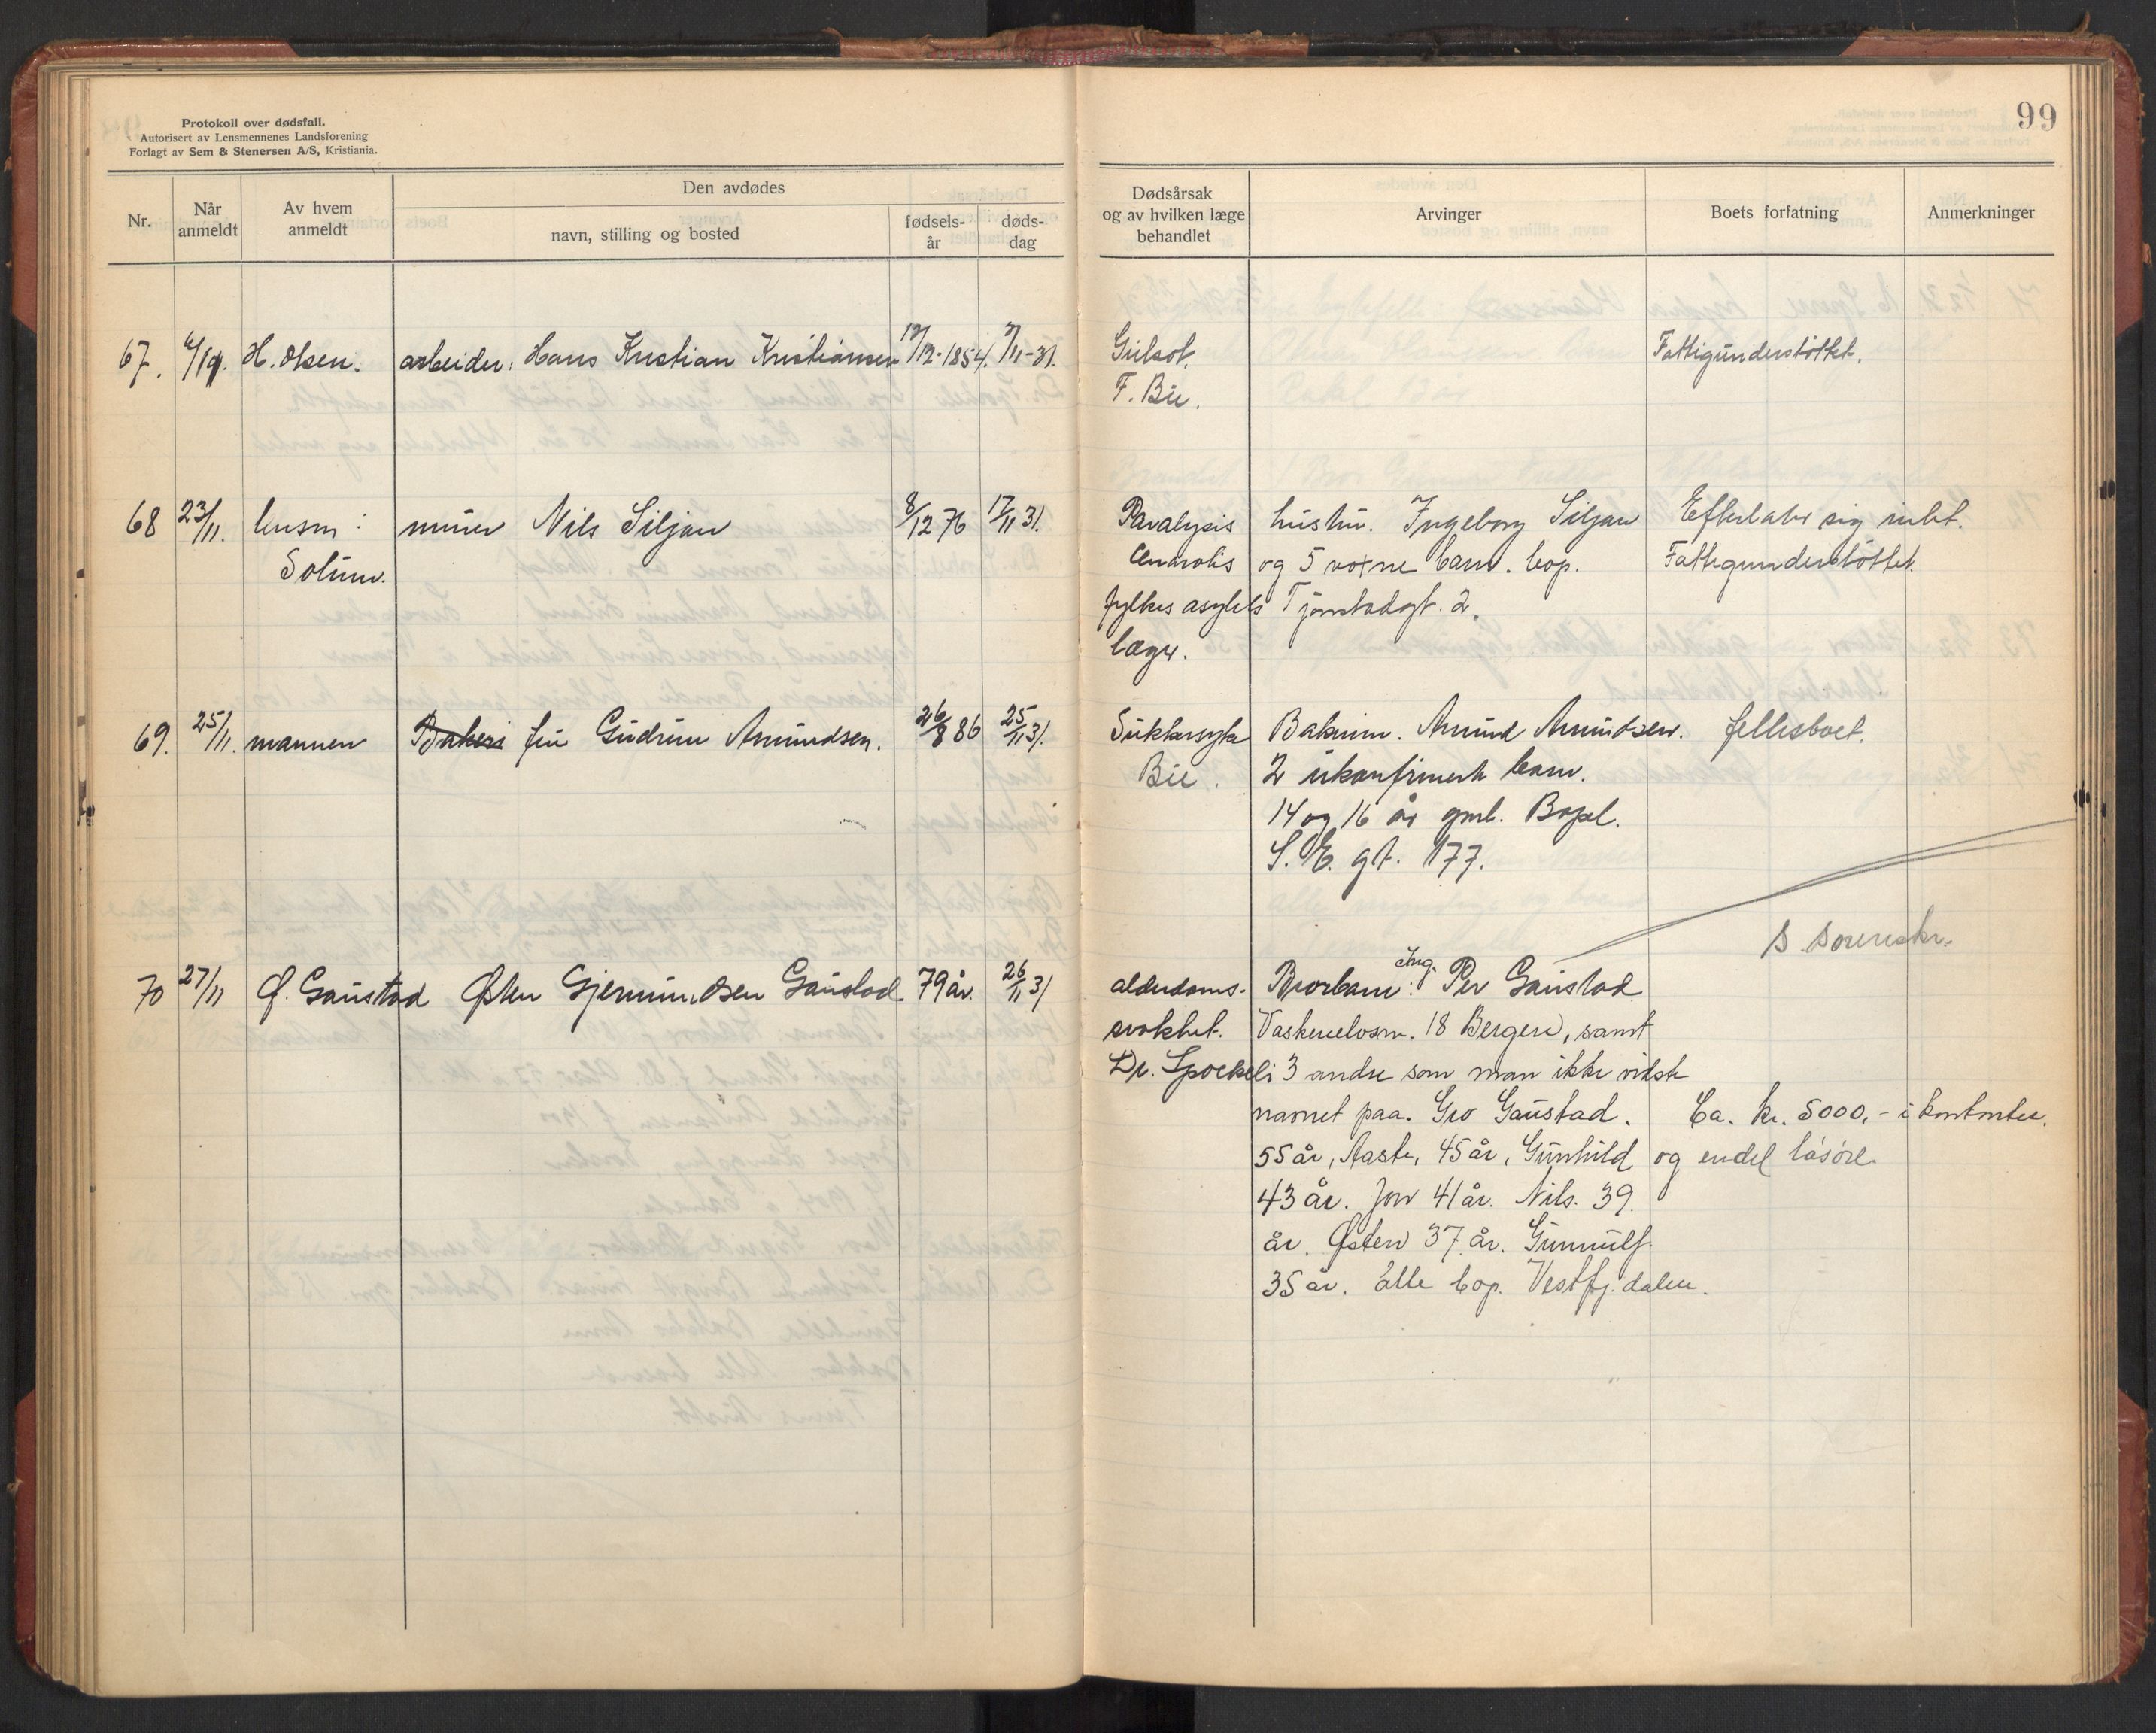 Protokoll over dødsfall.
Autorisert av Lensmennenes Landsforening
Forlagt av Sem & Stenersen A/S, Kristiania.
99
Nr.
Når anmeldt
Av hvem anmeldt
Den avdødes
navn, stilling og bosted
fødsels-år
døds-dag
Dødsårsak og av hvilken læge behandlet
Arvinger
Boets forfatning
Anmerkninger
67. H. Olsen. arbeider: Hans Kristian Kristiansen 12-1854. 7/11-31. Gulsot. Fattigunderstøttet.
F. Bie.
68 23/11. lensm: Nils Siljan 8/12 76 17/11 31. Paralysis hustru. Ingeborg Siljan Efterlater sig intet.
Solum. og 5 voxne barn. bop. Fattigunderstøttet.
fylkes asylets Tjønstadgt. 2.
læge.
69. 25/11. mannen Bakers fru Gudrun Amundsen. 26/8 86 25/11 31. Sukkersyke Bakerm. Amund Amundsen. fellesboet.
Bie. 2 ukonfirmerte barn.
14 og 16 år gml. Bopel.
S. E. gt. 177.
S. Sorenskr.
70 27/11 Ø. Gaustad Østen Gjermundsen Gaustad 79 år. 26/11 31 alderdoms- Brorbarn: Ing. Per Gaustad
svakhet. 18 Bergen, samt
Dr. 3 andre som man ikke vidste
navnet paa. Gro Gaustad. Ca. kr. 5000,- i kontanter.
55 år, Aaste, 45 år, Gunhild og endel løsøre.
43 år. Jon 41 år. Nils. 39.
år. Østen 37 år. Gunnulf
35 år. alle bop. Vestfj.dalen.